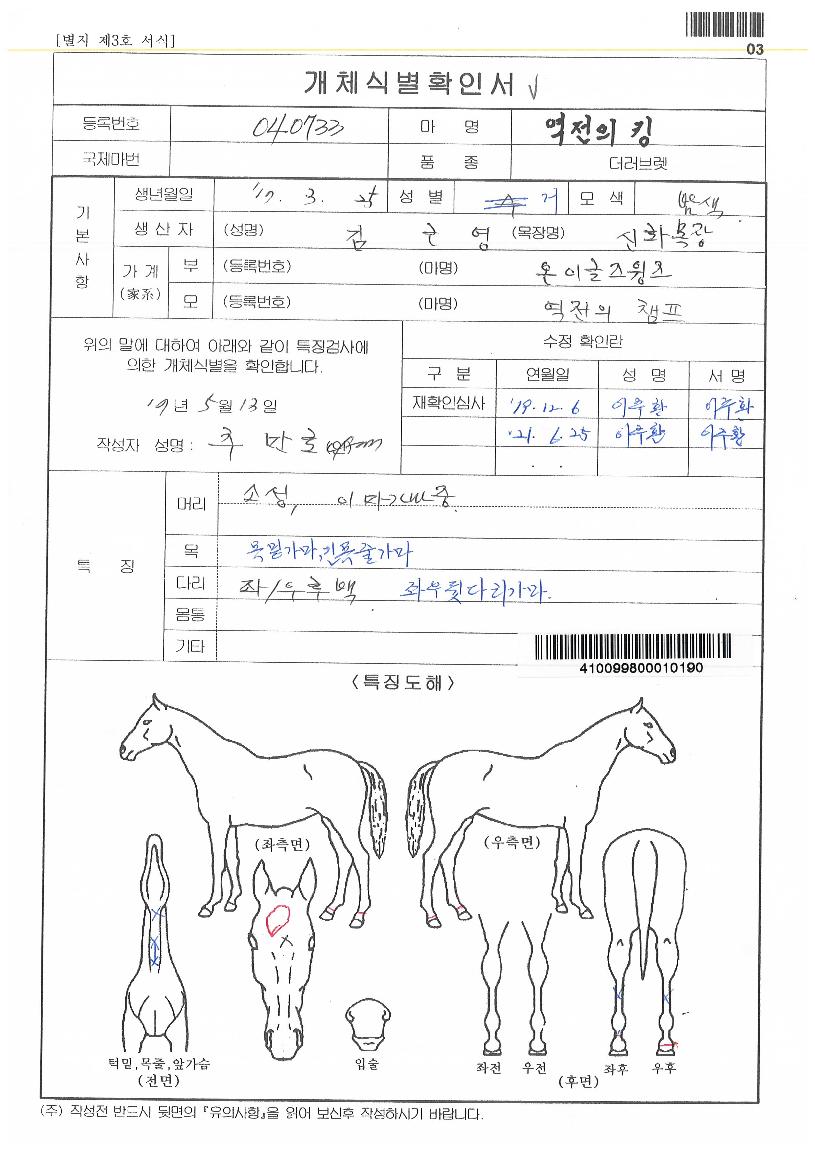 [별지 제3호 서식]
03
개체식별확인서 √
등록번호 040733 마 명 역전의 킹
국제마번 품 종 더러브렛
기본사항
생년월일 '17. 3. 25 성 별 거 모 색 밤색
생 산 자 (성명) 김 근 영 (목장명) 신화목장
가 계 (家系) 부 (등록번호) (마명) 온이글즈윙즈
모 (등록번호) (마명) 역전의 챔프
위의 말에 대하여 아래와 같이 특징검사에
의한 개체식별을 확인합니다.
'19년 5월 13일
작성자 성명 : 추 만 호
수정 확인란
구 분 연월일 성 명 서 명
재확인심사 '19. 12. 6 이주환 이주환
'21. 6. 25 이주환 이주환
. .
특 징
머리 소성, 이마가마중
목 목밑가마,긴목줄가마
다리 좌/우후백 좌우뒷다리가마.
몸통
기타
410099800010190
〈특징도해〉
(좌측면) (우측면)
턱밑,목줄,앞가슴
(전면)
입술
좌전 우전 좌후 우후
(후면)
(주) 작성전 반드시 뒷면의 『유의사항』을 읽어 보신후 작성하시기 바랍니다.